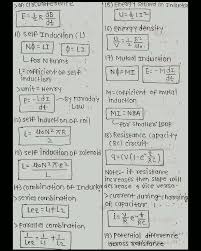 on circular
E = r/2 dB/dt
10) self Induction (L)
NΦ = LI
Φ = LI
↳ for N turns
L = cofficient of self
Inductance
unit = Henry
E = -LdI/dt
by faraday
Law
12) self induction of coil
L = μ0N²πR/2
13) self induction of solenoid
L = μ0N²πr²/l
14) combination of Inductor
> series combination
Leq = L1+L2
> Parallel combination
15) Energy stored in Inductor
U = 1/2 LI²
16) Energy density
17) Mutual Induction
NΦ = MI
E = -MdI/dt
M = cofficient of mutual
induction
MI = NBA
↳ for shorter loop
18) Resistance capacity
(RC) circuit
Note:- if resistance
increases then slope will
decrease & vice versa
> current during charging
of capacitor
19) Potential difference
across resistance